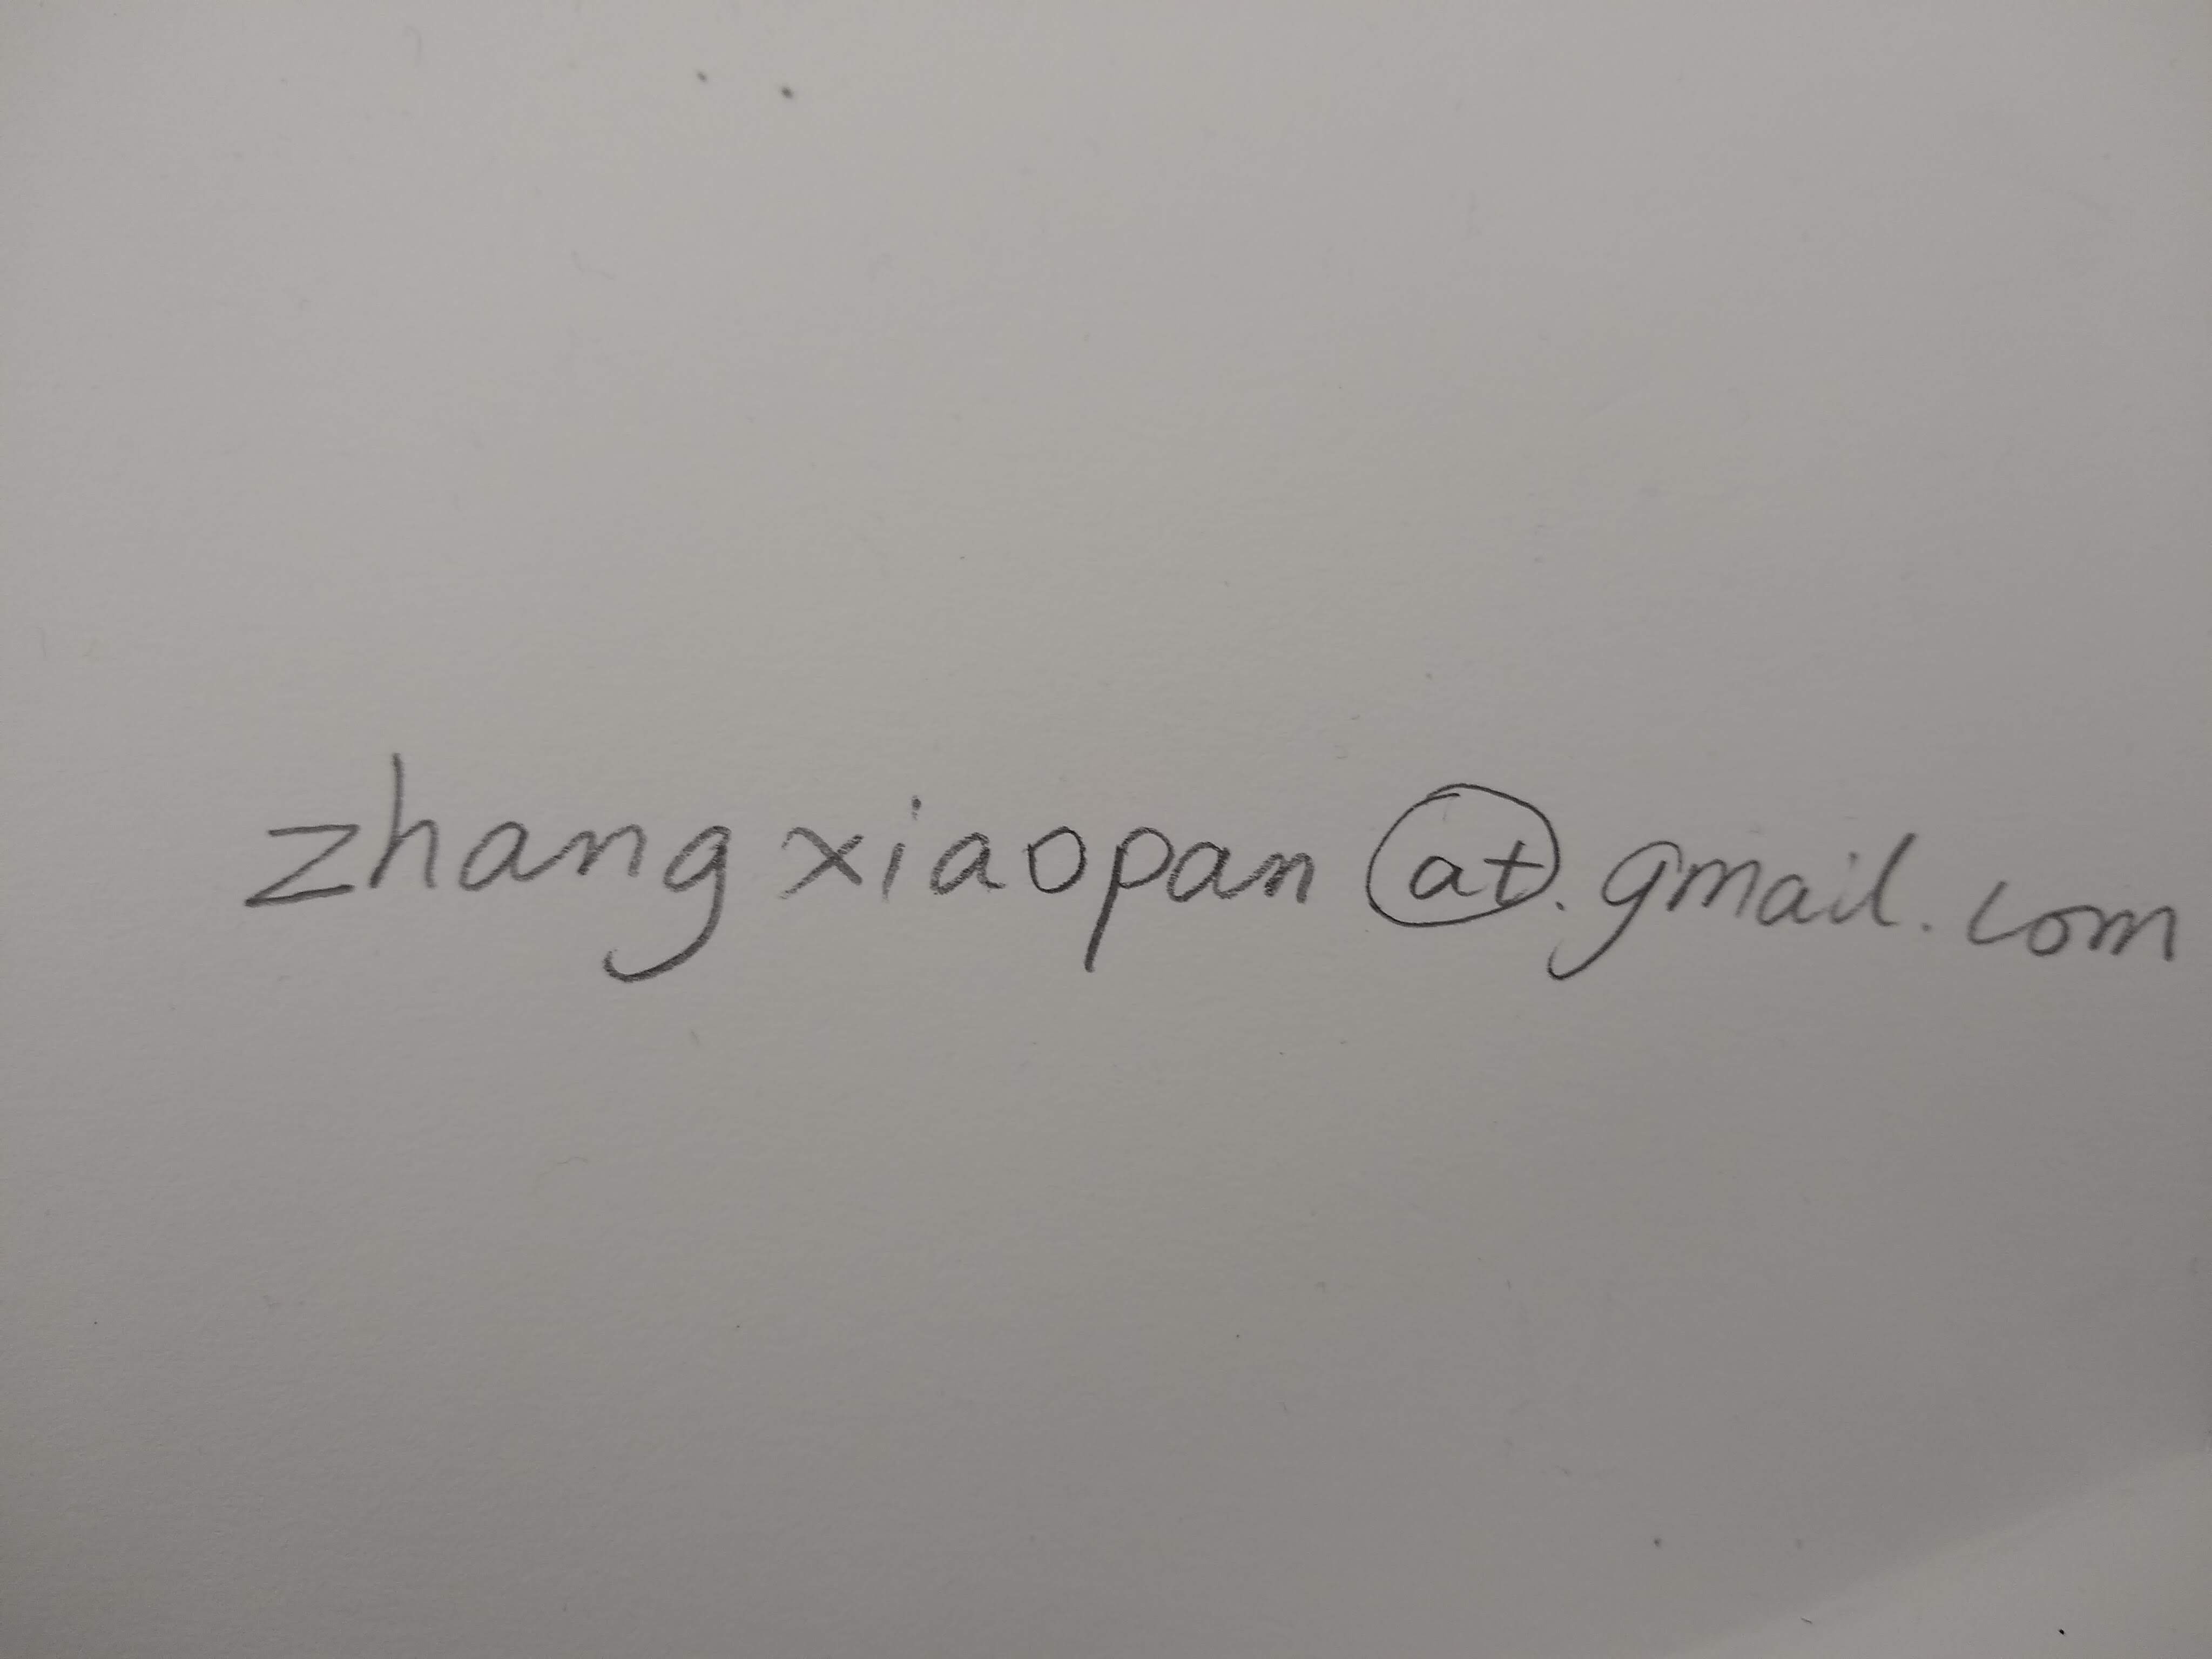 zhangxiaopan at.gmail.com